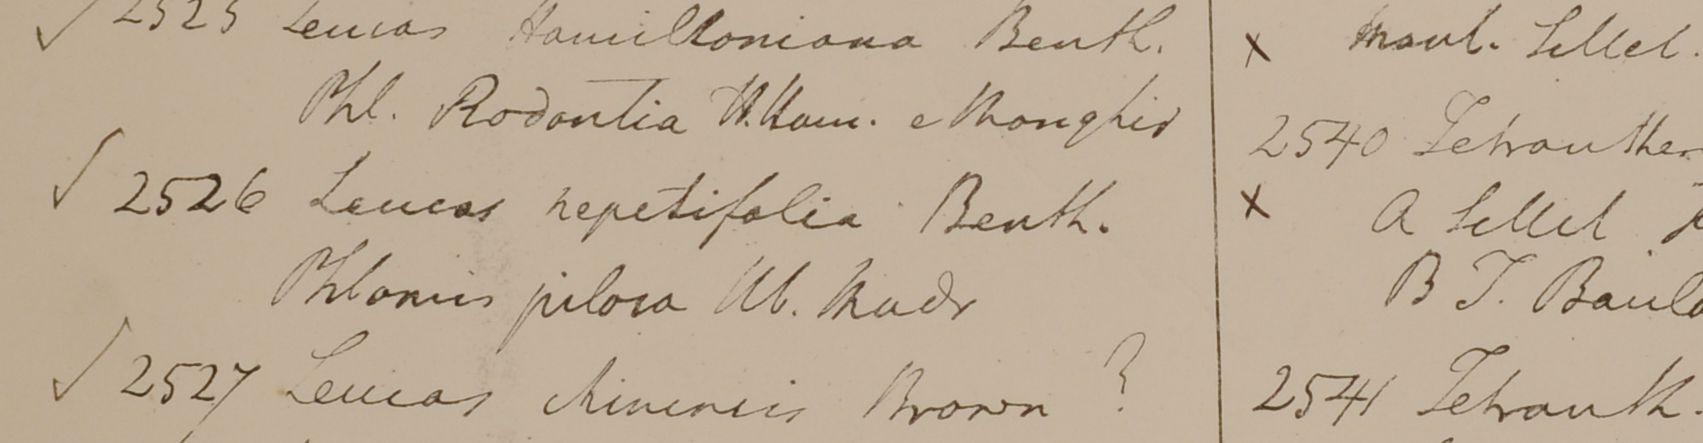 ✓ 2525 Leucas Hamiltoniana Benth.
Phl. Rodontia H. Ham. e Monghir
✓ 2526 Leucas nepetifolia Benth.
Phlomis pilosa Hb. Madr
✓ 2527 Leucas chinensis Brown ?
x Moul. Lellel.
2540 Tetranther
x A Lellel
B T. Baul
2541 Tetranth.